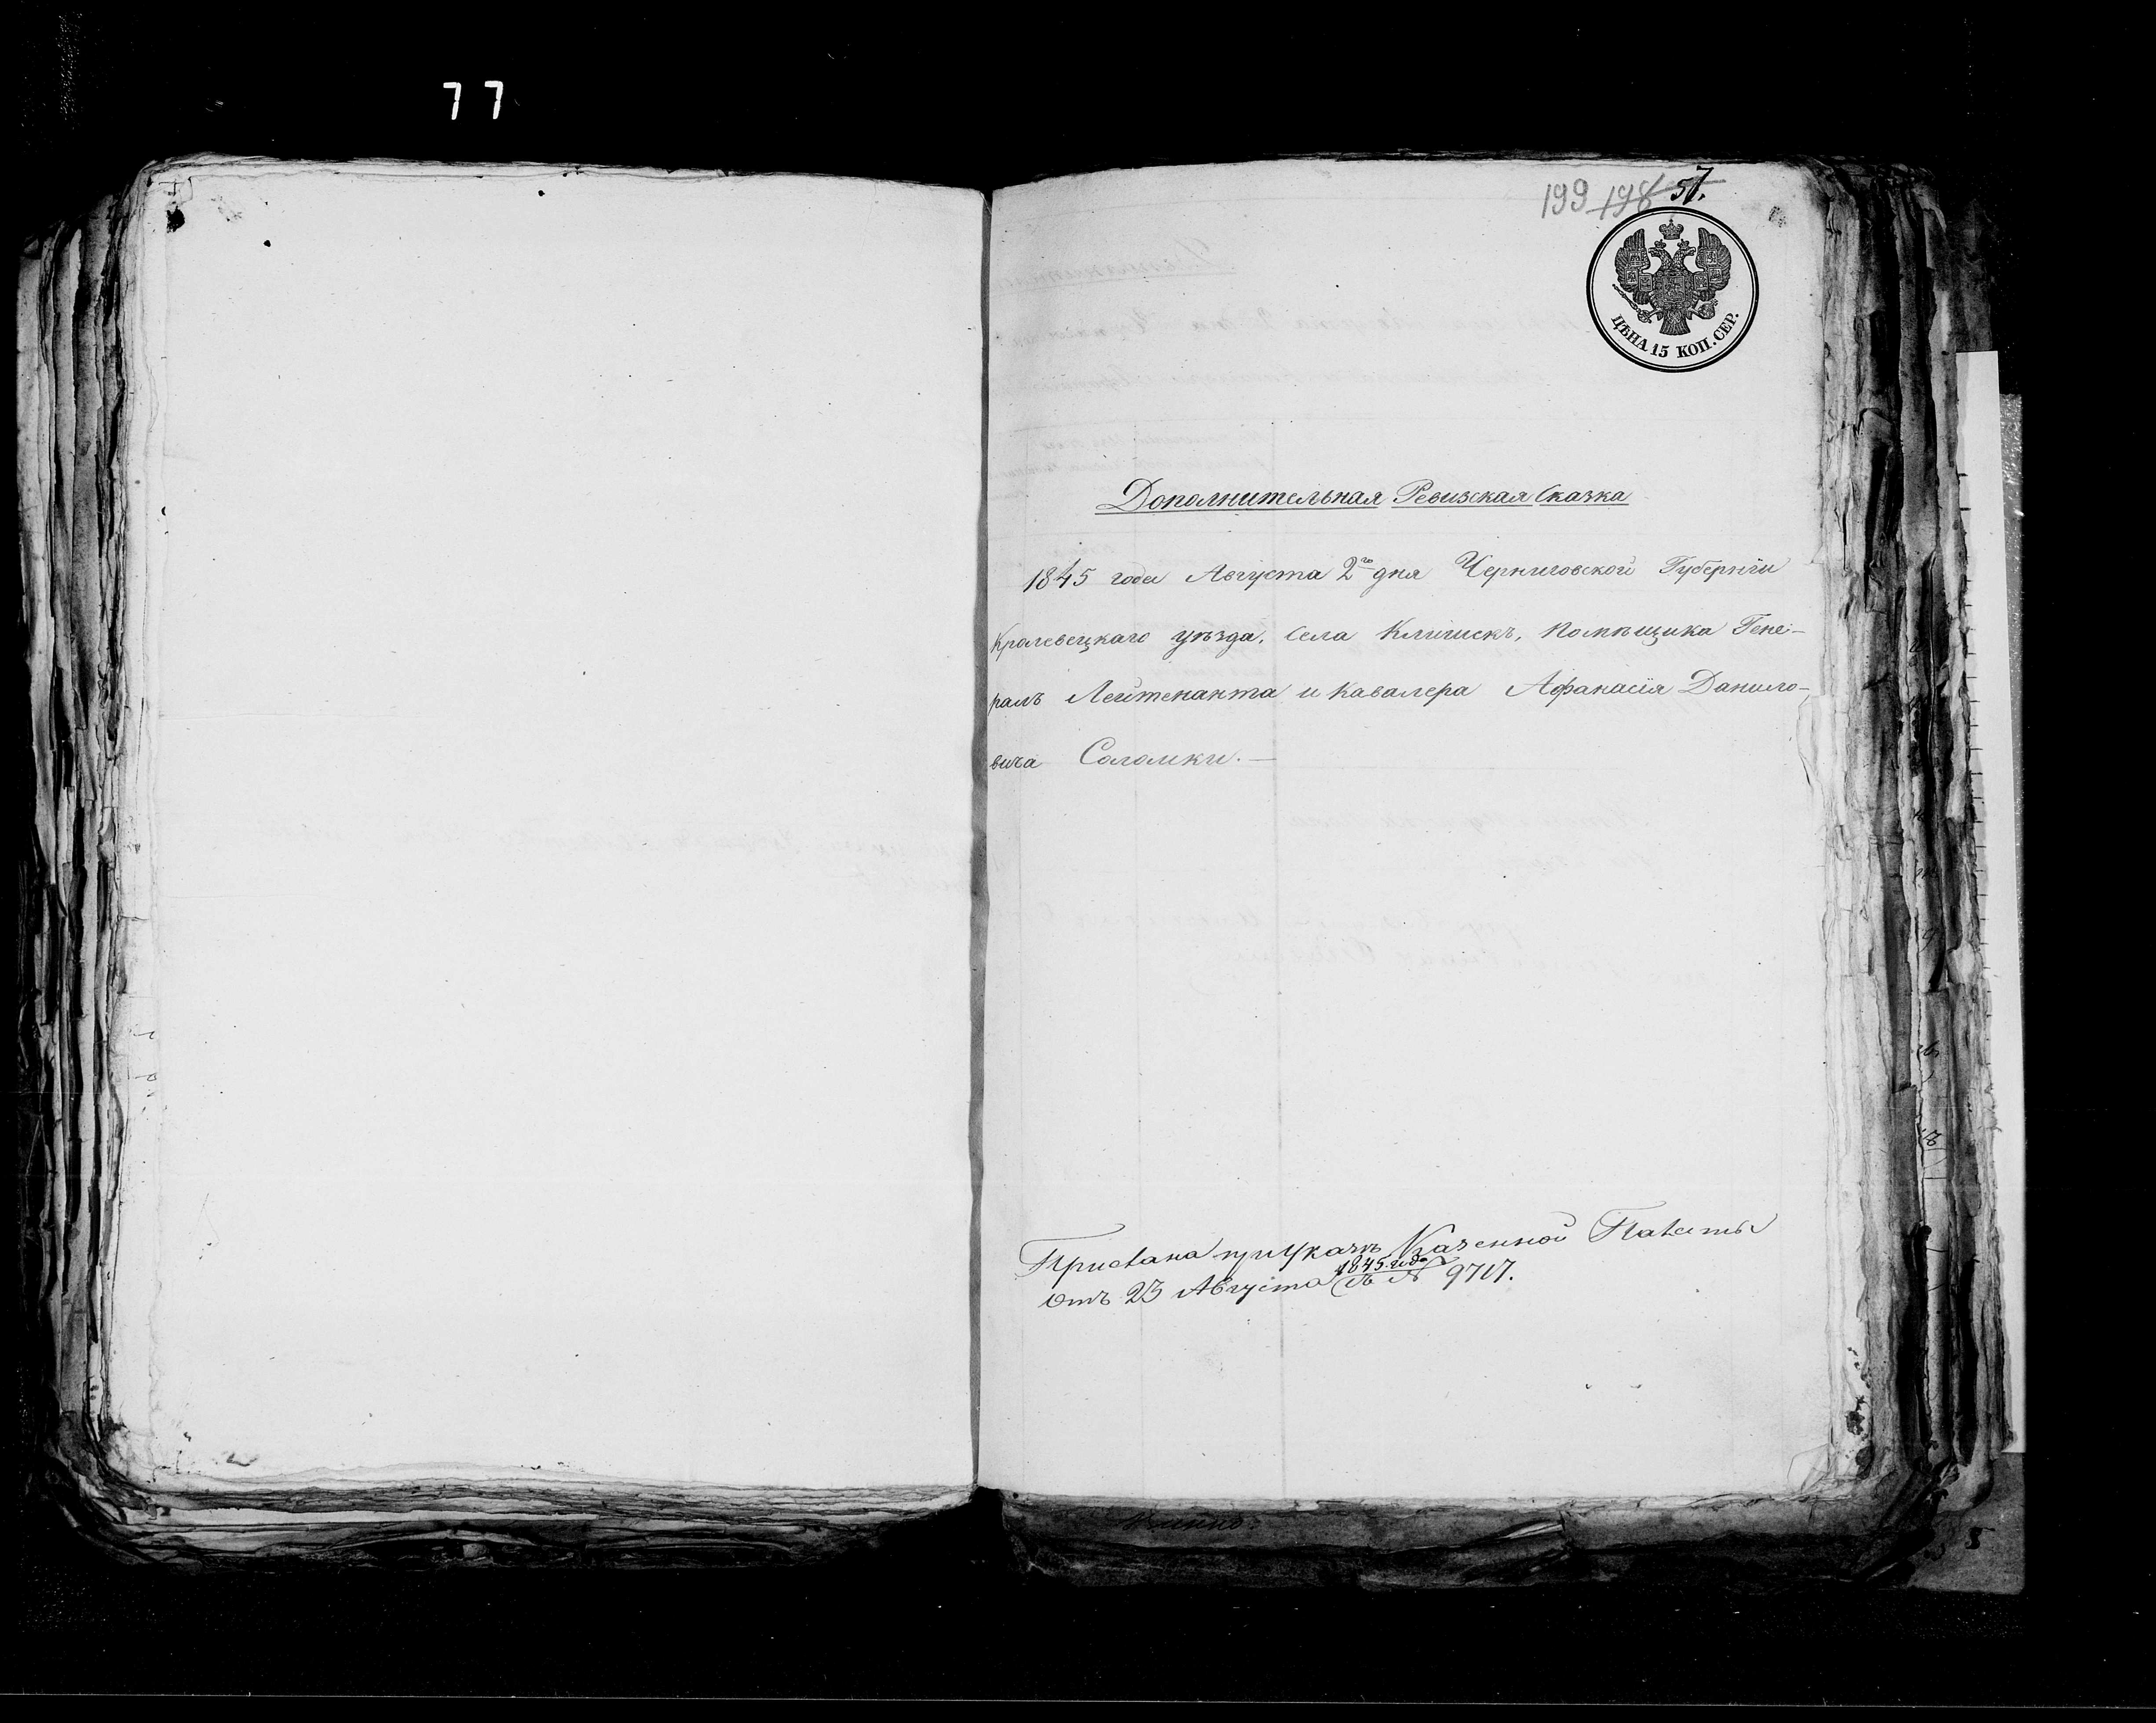 77
199 198 57.
ЦѢНА 15 КОП. СЕР.
Дополнительная Ревизская Сказка
1845 года Августа 2го дня Черниговской Губерніи
Кролевецкаго уѣзда, Села Клишекъ, Помѣщика Гене-
ралъ Лейтенанта и Кавалера Афанасія Данило-
вича Соломки.—
Прислана при Указѣ Казенной Палаты
1845. года
Отъ 23 Августа за № 9717.